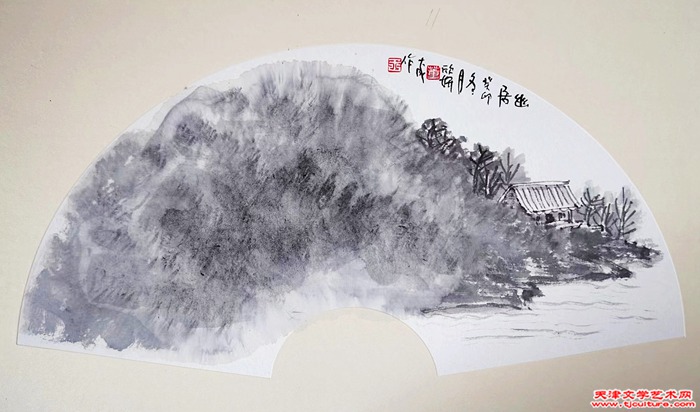 幽居 癸卯冬月
作
天津文学艺术网
www.tjculture.com